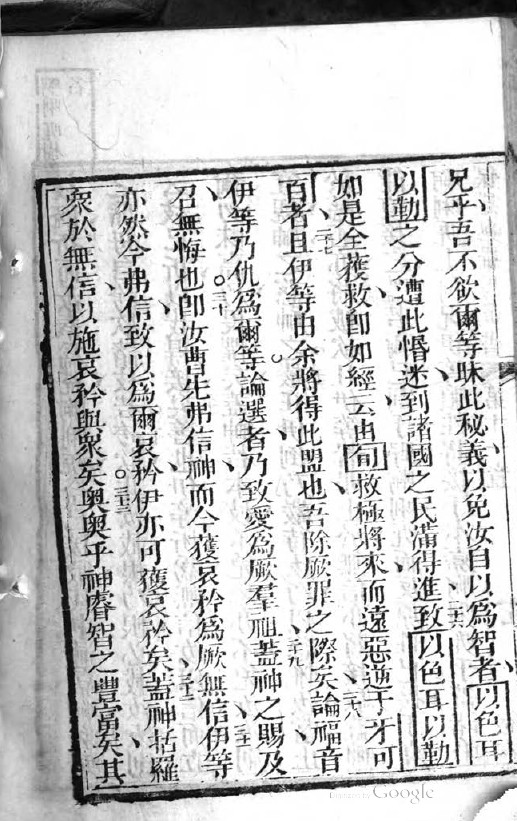 兄乎吾不欲爾等昧此秘義以免汝自以為智者以色耳
以勒之分遭此惛迷到諸國之民滿得進致二六以色耳以勒
如是全獲救即如經云由旬救極將來而遠惡逆于牙可
百者二七且伊等由余將得此盟也吾除厥罪之際矣論福音二八
伊等乃仇為爾等論選者乃致愛為厥羣祖蓋神之賜及二九
召無悔也三十即汝曹先弗信神而今獲哀矜為厥無信伊等三一
亦然今弗信致以為爾哀矜伊亦可獲哀矜矣蓋神括羅三二
眾於無信以施哀矜與眾矣三三奥奥乎神睿智之豐富矣其
Google